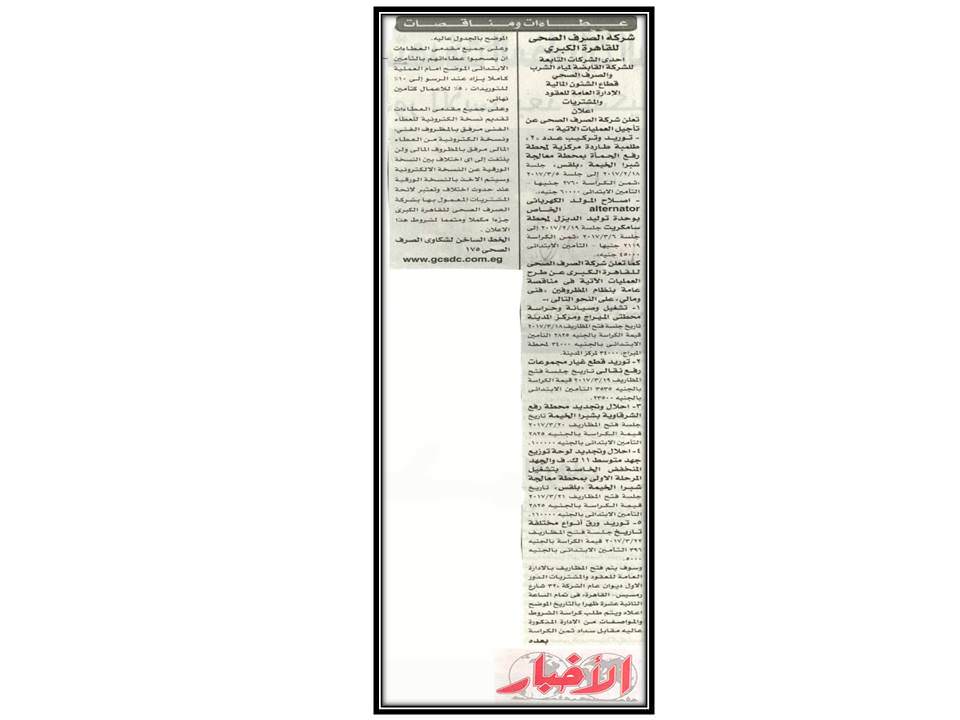 عطاءات ومناقصات
شركة الصرف الصحى
للقاهرة الكبري
احدى الشركات التابعة
للشركة القابضة لمياه الشرب
والصرف الصحي
قطاع الشئون المالية
الادارة العامة للعقود
والمشتريات
اعلان
تعلن شركة الصرف الصحى عن
تأجيل العمليات الآتية :-
- توريد وتركيب عدد ٢٠
طلمبة طاردة مركزية لمحطة
رفع الحمأة بمحطة معالجة
شبرا الخيمة ،بلقس، جلسة
٢٠١٧/٢/١٨ إلى جلسة ٢٠١٧/٣/٥
،ثمن الكراسة ٢٧٦٠ جنيها -
التأمين الابتدائى ٦٠٠٠٠ جنيه،.
- اصلاح المولد الكهربائى
alternator الخاص
بوحدة توليد الديزل لمحطة
سامكريت جلسة ٢٠١٧/٢/١٩ إلى
جلسة ٢٠١٧/٣/٦ ،ثمن الكراسة
٢١١٩ جنيها - التأمين الابتدائى
٤٥٠٠٠ جنيه،.
كما تعلن شركة الصرف الصحى
للقاهرة الكبرى عن طرح
العمليات الآتية فى مناقصة
عامة بنظام المظروفين ،فنى
ومالي، على النحو التالى :-
١- تشغيل وصيانة وحراسة
محطتى الميراج ومركز المدينة
تاريخ جلسة فتح المظاريف ٢٠١٧/٣/١٨
قيمة الكراسة بالجنيه ٢٨٢٥ التأمين
الابتدائى بالجنيه ٣٤٠٠٠ لمحطة
الميراج، ٣٤٠٠٠ لمركز المدينة.
٢- توريد قطع غيار مجموعات
رفع نقالى تاريخ جلسة فتح
المظاريف ٢٠١٧/٣/١٩ قيمة الكراسة
بالجنيه ٣٥٣٥ التأمين الابتدائى
بالجنيه ٢٣٥٠٠.
٣- احلال وتجديد محطة رفع
الشرقاوية بشبرا الخيمة تاريخ
جلسة فتح المظاريف ٢٠١٧/٣/٢٠
قيمة الكراسة بالجنيه ٢٨٢٥
التأمين الابتدائى بالجنيه ١٠٠٠٠٠.
٤- احلال وتجديد لوحة توزيع
جهد متوسط ١١ ك. ف والجهد
المنخفض الخاصة بتشغيل
المرحلة الأولى بمحطة معالجة
شبرا الخيمة ،بلقس، تاريخ
جلسة فتح المظاريف ٢٠١٧/٣/٢١
قيمة الكراسة بالجنيه ٢٨٢٥
التأمين الابتدائى بالجنيه ١١٠٠٠٠.
٥- توريد ورق أنواع مختلفة
تاريخ جلسة فتح المظاريف
٢٠١٧/٣/٢٢ قيمة الكراسة بالجنيه
٣٩٦ التأمين الابتدائى بالجنيه
٥٠٠٠.
وسوف يتم فتح المظاريف بالادارة
العامة للعقود والمشتريات الدور
الاول ديوان عام الشركة ،٣٢ شارع
رمسيس - القاهرة، فى تمام الساعة
الثانية عشرة ظهرا بالتاريخ الموضح
اعلاه ويتم طلب كراسة الشروط
والمواصفات من الادارة المذكورة
عاليه مقابل سداد ثمن الكراسة
بعده
الموضح بالجدول عاليه.
وعلى جميع مقدمى العطاءات
ان يصحبوا عطاءاتهم بالتأمين
الابتدائى الموضح امام العملية
كاملا يزاد عند الرسو إلى ١٠٪
للتوريدات ، ٥٪ للاعمال كتأمين
نهائى.
وعلى جميع مقدمى العطاءات
تقديم نسخة الكترونية للعطاء
الفنى مرفق بالمظروف الفنى،
ونسخة الكترونية من العطاء
المالى مرفق بالمظاريف المالى ولن
يلتفت إلى اى اختلاف بين النسخة
الورقية عن النسخة الالكترونية
وسيتم الاخذ بالنسخة الورقية
عند حدوث اختلاف وتعتبر لائحة
المشتريات المعمول بها بشركة
الصرف الصحى للقاهرة الكبرى
جزءا مكملا ومتمما لشروط هذا
الاعلان .
الخط الساخن لشكاوى الصرف
الصحى ١٧٥
www.gcsdc.com.eg
الأخبار